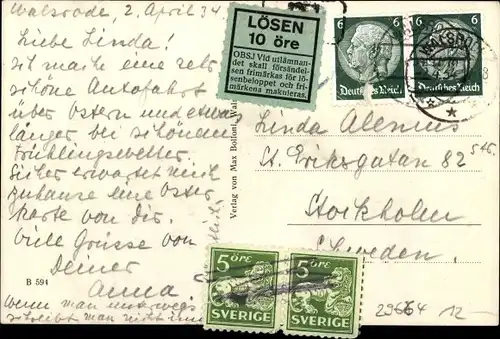 Walsrode, 2. April 34
Liebe Linda!
ich mache eine sehr
schöne Autofahrt
über Ostern und etwas
länger bei schönem
Frühlingswetter.
Sicher erwartet mich
zuhause eine Oster
karte von Dir.
Viele Grüsse von
Deiner
Anna
Wenn man unterwegs
schreibt man nicht
B 594
Verlag von Max Bolfont, Wals
LÖSEN
10 öre
OBS.! Vid utlämnan-
det skall försändel-
sen frimärkas för lö-
senbeloppet och fri-
märkena makuleras.
6 6
Deutsches Reich
6
Deutsches Reich
WALSRODE
Linda Alenius
St. Eriksgatan 82
Stockholm
Schweden.
5 ÖRE
SVERIGE
5 ÖRE
SVERIGE
12-